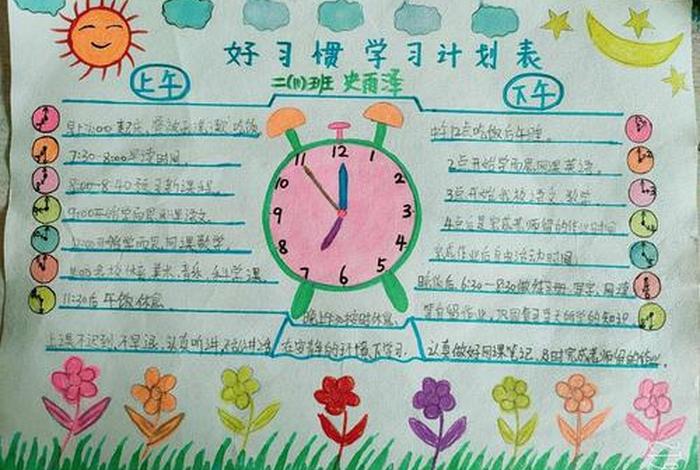 好习惯学习计划表
二(11)班 史雨泽
上午
下午
早7:00起床、
7:30-8:00早读时间。
8:00-8:40预习新课程。
9:00开始学而思网课语文。
开始学而思网课数学。
美术、音乐、科学课。
11:30后午饭休息。
中午12点吃饭后午睡。
2点开始学而思网课英语。
3点开始 语文、数学。
4点后是完成老师留的作业时间
完成作业后自由活动时间。
晚饭后,6:30-8:30做练习册、
11
12
1
2
3
4
5
6
7
8
9
10
晚上9:00按时休息。
上课不迟到、不早退、认真听讲、
在安静的环境下学习。
认真做好网课笔记、及时完成老师留的作业。